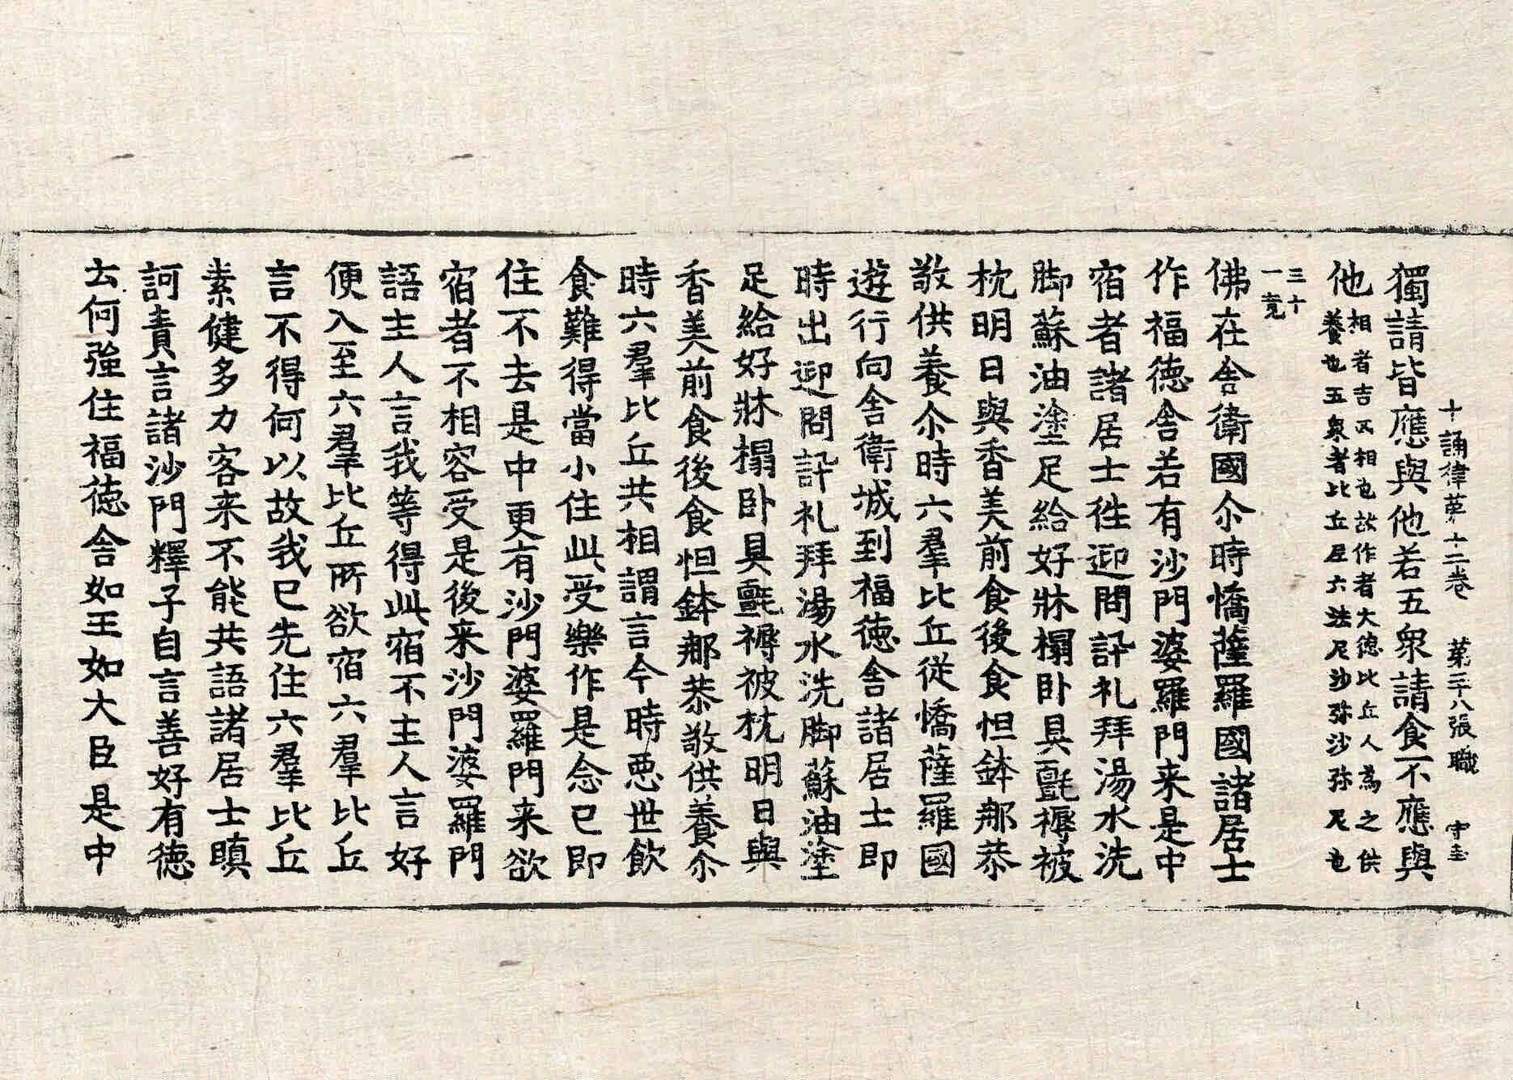 十誦律第十二卷 第三十八張 職
獨請皆應與他若五衆請食不應與
他
相者吉不相也故作者大德比丘人為之供
養也五衆者比丘尼六法尼沙弥沙弥尼也
三十
一竟
佛在舍衛國尒時憍薩羅國諸居士
作福德舍若有沙門婆羅門来是中
宿者諸居士徃迎問訊礼拜湯水洗
脚蘇油塗足給好牀榻卧具氈褥被
枕明日與香美前食後食怛鉢那恭
敬供養尒時六羣比丘従憍薩羅國
遊行向舍衛城到福德舍諸居士即
時出迎問訊礼拜湯水洗脚蘇油塗
足給好牀榻卧具氈褥被枕明日與
香美前食後食怛鉢那恭敬供養尒
時六羣比丘共相謂言今時惡世飲
食難得當小住此受樂作是念已即
住不去是中更有沙門婆羅門来欲
宿者不相容受是後来沙門婆羅門
語主人言我等得此宿不主人言好
便入至六羣比丘所欲宿六羣比丘
言不得何以故我已先住六羣比丘
素健多力客来不能共語諸居士瞋
訶責言諸沙門釋子自言善好有德
云何強住福德舍如王如大臣是中